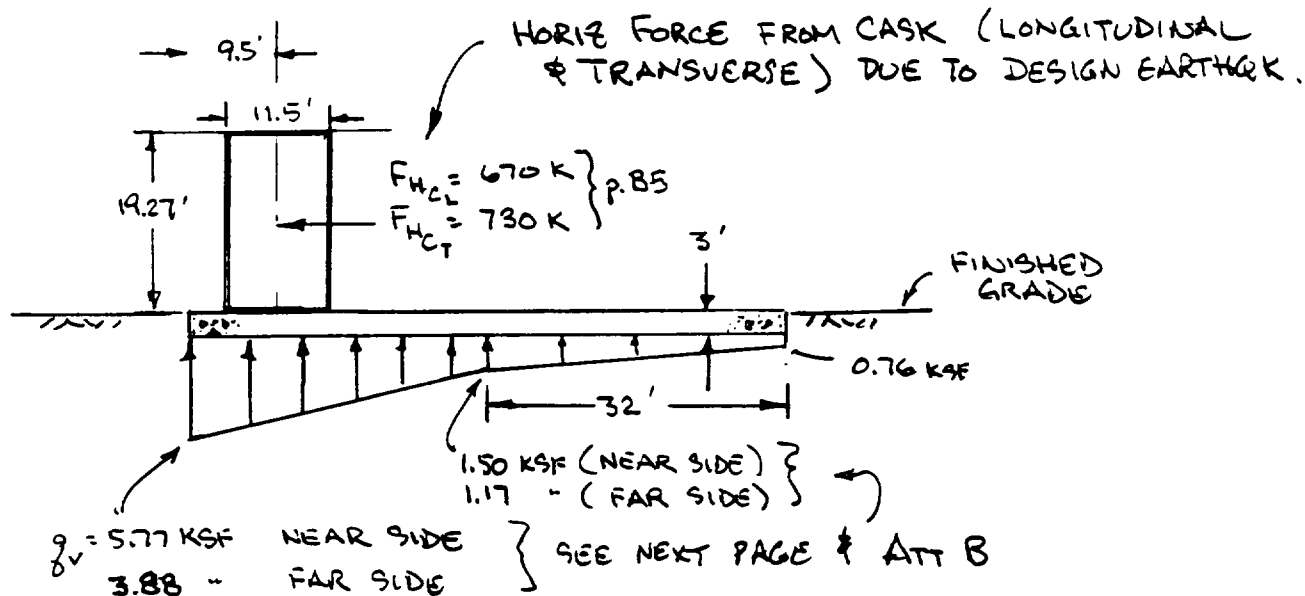 HORIZ FORCE FROM CASK (LONGITUDINAL
& TRANSVERSE) DUE TO DESIGN EARTHQK.
9.5'
11.5'
19.27'
F_HCL = 670 K
F_HCT = 730 K
} p.B5
3'
FINISHED
GRADE
0.76 KSF
32'
1.50 KSF (NEAR SIDE)
1.17 " (FAR SIDE)
q_v = 5.77 KSF NEAR SIDE
3.88 " FAR SIDE
} SEE NEXT PAGE & ATT B